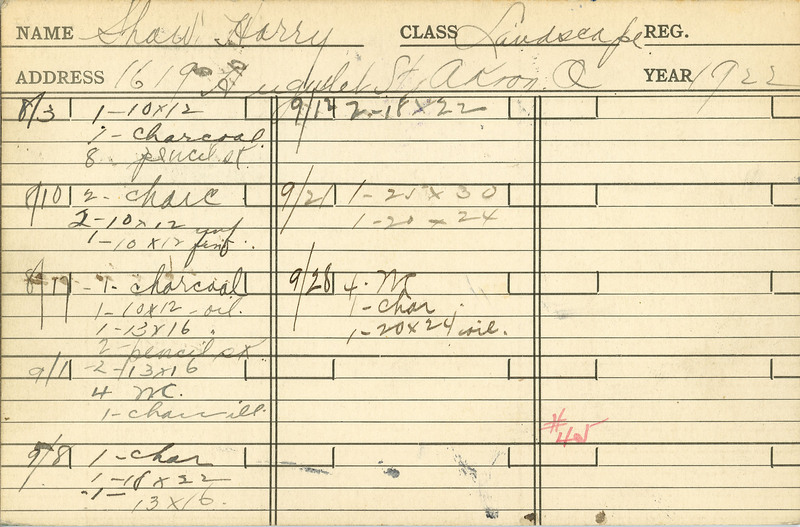 NAME Shaw Harry CLASS Landscape REG.
ADDRESS 1619 St, Akron, O YEAR 1922
8/3 1-10x12
1- charcoal
8 pencil sk.
8/10 2- charc
2-10x12 unf
1-10x12 finf.
8/17 -1- charcoal
1-10x12 - oil
1-13x16 "
2- pencil sk
9/1 -2-13x16
4 WC.
1- char ill.
9/8 1-char
1-18x22
-1-
13x16.
9/14 2-18x22
9/21 1-25x30
1-20x24
9/28 4. WC
1-char.
1-20x24 oil.
#45